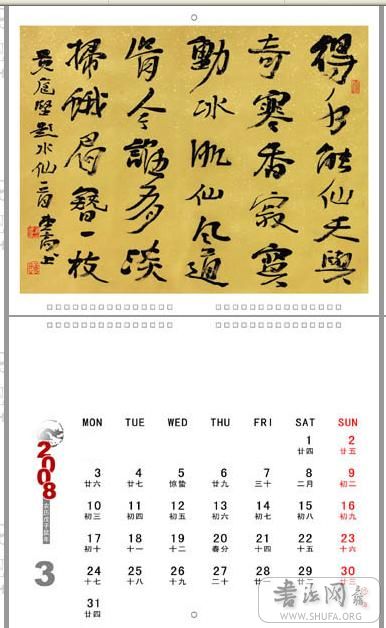 得水能仙天與
奇寒香寂寞
動冰肌仙風道
骨今誰有淡
掃蛾眉簪一枝
黃庭堅題水仙
2008
农历戊子鼠年
3
MON TUE WED THU FRI SAT SUN
1 2
廿四 廿五
3 4 5 6 7 8 9
廿六 廿七 惊蛰 廿九 三十 二月 初二
10 11 12 13 14 15 16
初三 初四 初五 初六 初七 初八 初九
17 18 19 20 21 22 23
初十 十一 十二 春分 十四 十五 十六
24 25 26 27 28 29 30
十七 十八 十九 二十 廿一 廿二 廿三
31
廿四
书法网
WWW.SHUFA.ORG